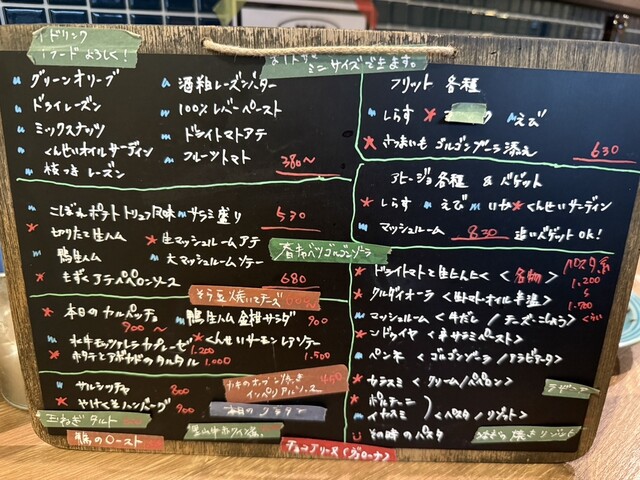 1ドリンク
1フード よろしく!
ミニサイズできます。
グリーンオリーブ
ドライレーズン
ミックスナッツ
くんせいオイルサーディン
枝つきレーズン
酒粕レーズンバター
100%レバーペースト
ドライトマトアテ
フルーツトマト
380〜
こぼれポテトトリュフ風味
サラミ盛り
530
切りたて生ハム
生マッシュルームアテ
鴨生ハム
大マッシュルームソテー
もずくアテペペロンソース
680
春キャベツゴルゴンゾーラ
そら豆焼いてチーズ
本日のカルパッチョ
900〜
鴨生ハム 金柑サラダ 900
水牛モッツァレラカプレーゼ 1.200
くんせいサーモンレアソテー 1.500
ホタテとアボカドのタルタル 1.000
サルシッチャ 800
やけくそハンバーグ 900
玉ねぎタルト
鴨のロースト
450
本日の
チョコテリーヌ
フリット 各種
しらす
えび
さつまいもゴルゴンゾーラ添え
630
アヒージョ各種 & バゲット
しらす
えび
いか
くんせいサーディン
マッシュルーム
830
追いバゲットOK!
ドライトマトと生にんにく <名物>
パスタ系
1.200
クルダイオーラ <生トマトオイル 辛塩>
1.700
マッシュルーム <牛だし / チーズこしょう>
くらい
ンドゥイヤ <辛サラミペースト>
ペンネ <ゴルゴンゾーラ / アラビアータ>
カラスミ <クリーム / ペペロン>
ポルチーニ
イカスミ
<パスタ / リゾット>
その時のパスタ
焼きリゾット